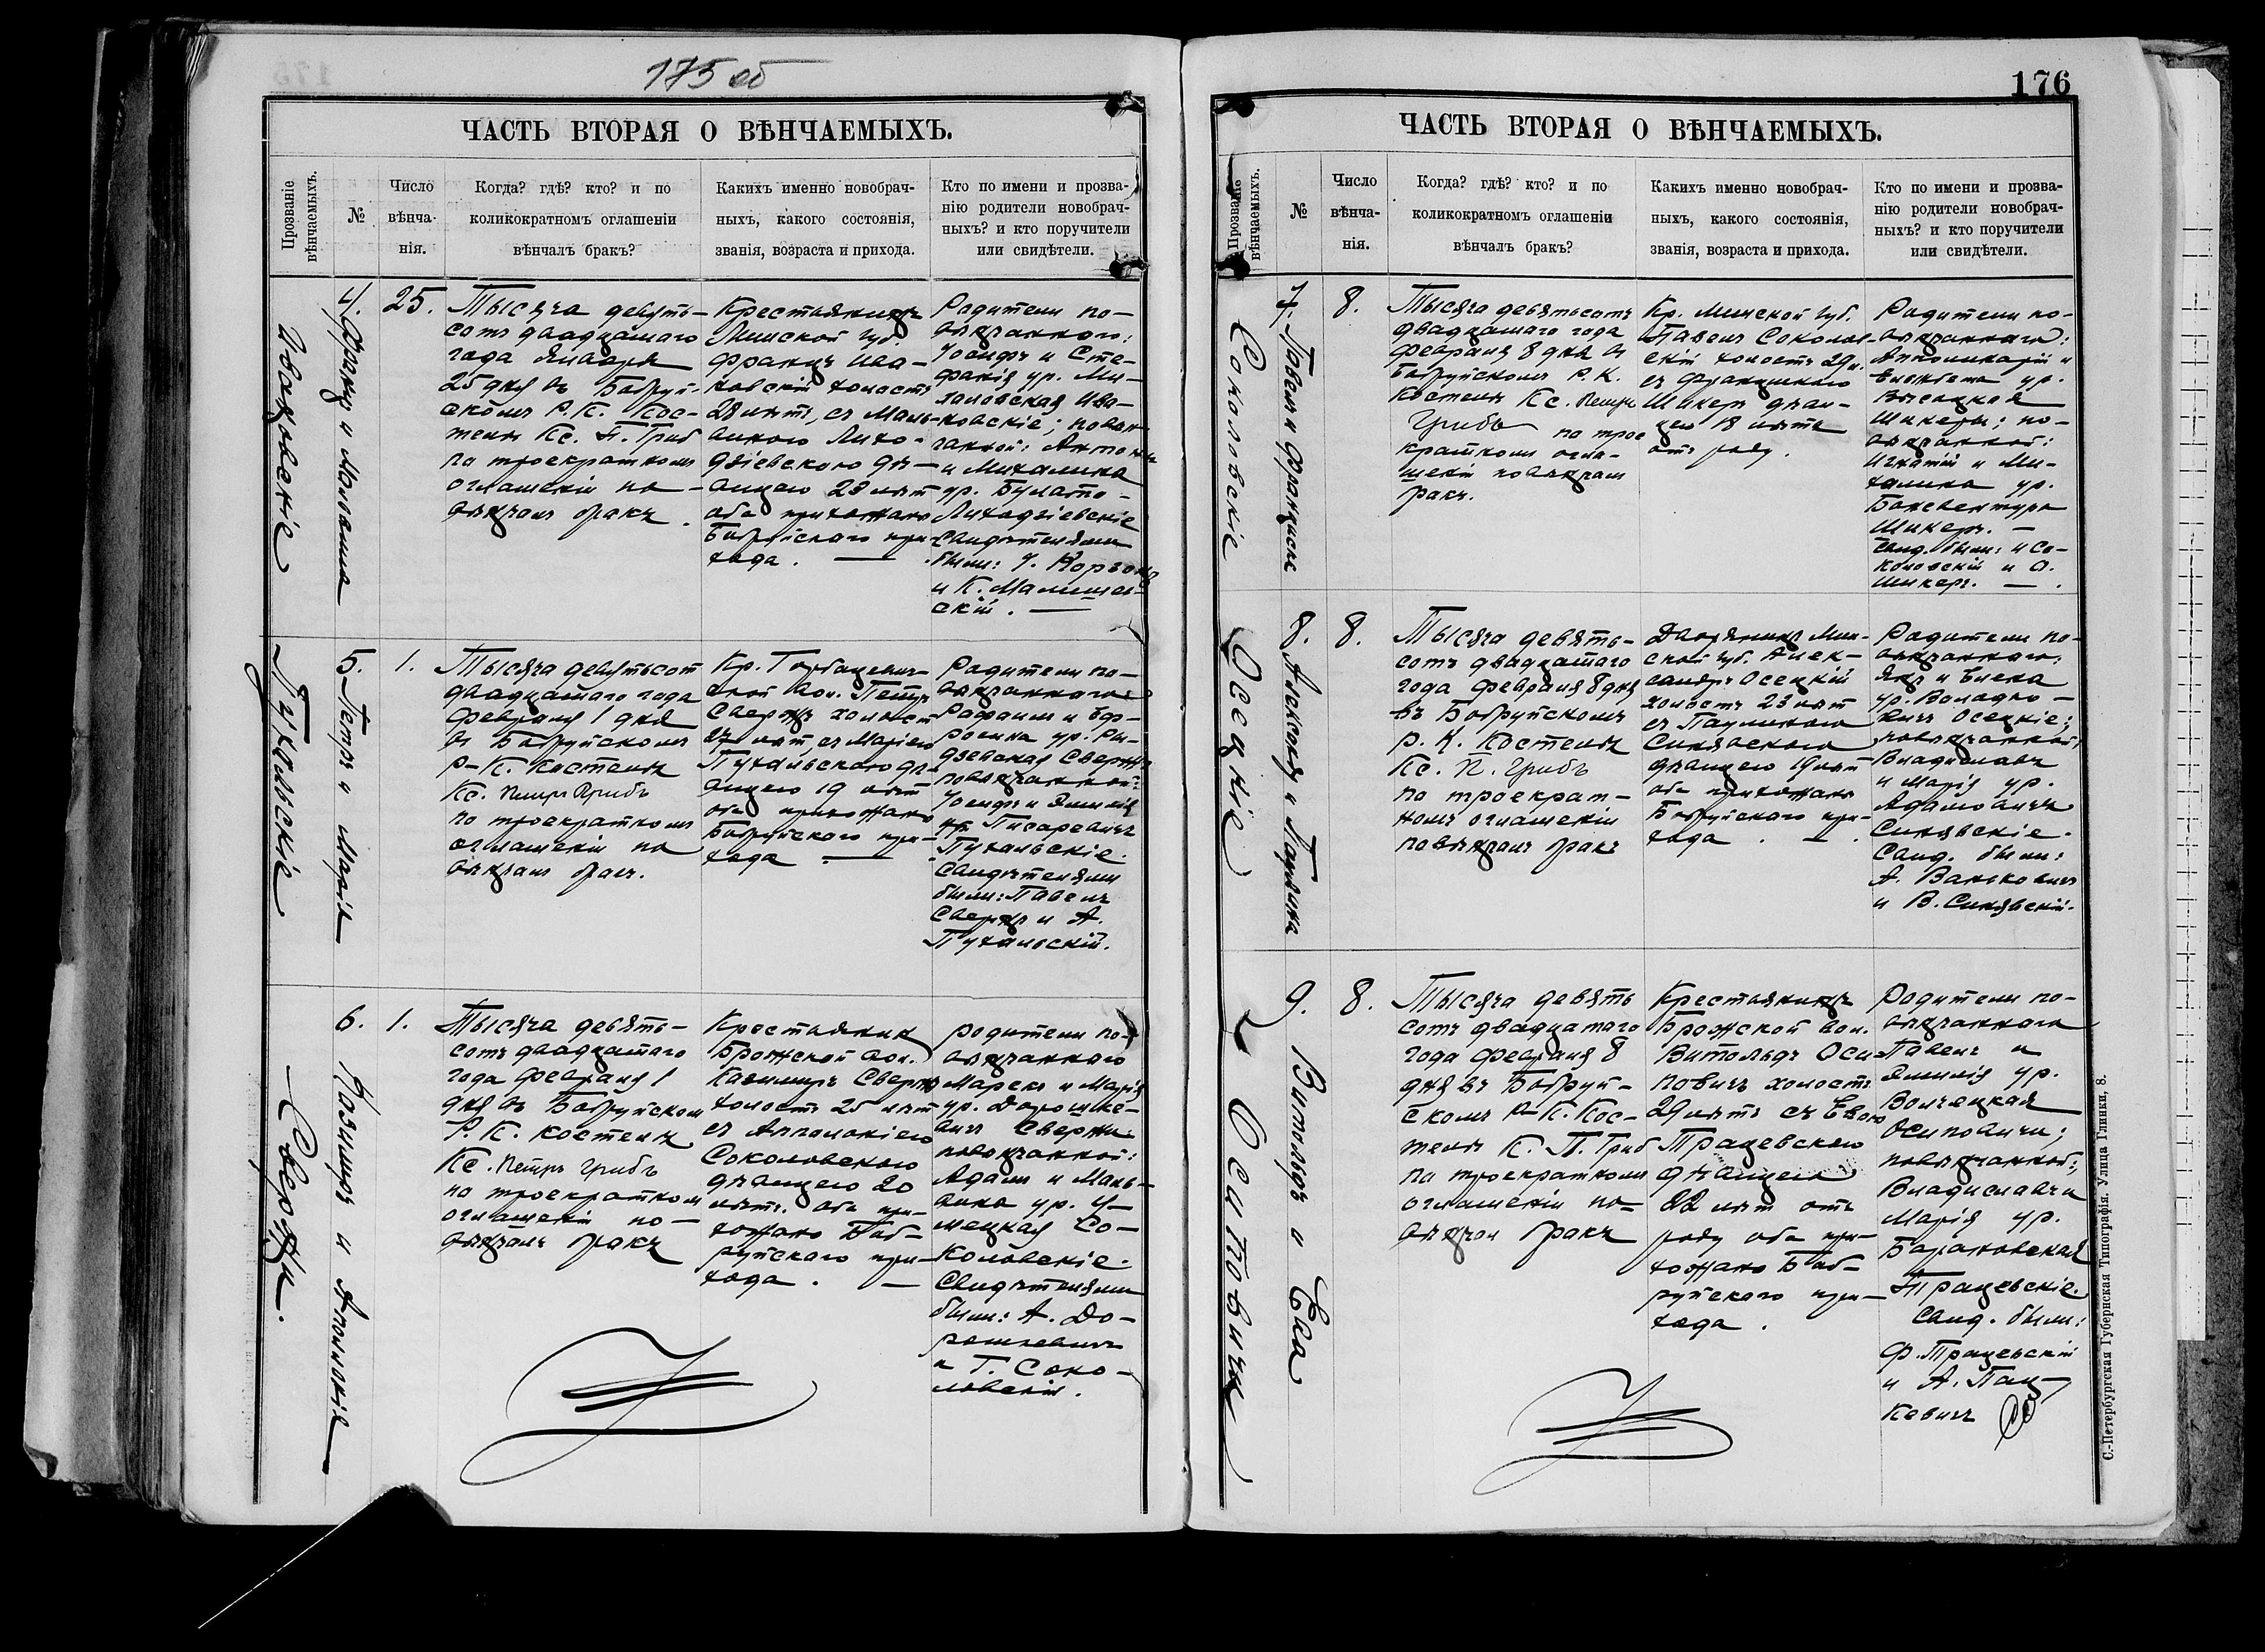 175 об
ЧАСТЬ ВТОРАЯ О ВѢНЧАЕМЫХЪ.
Прозваніе вѣнчаемыхъ.
№
Число вѣнча- нія.
Когда? гдѣ? кто? и по
коликократномъ оглашеніи
вѣнчалъ бракъ?
Какихъ именно новобрач-
ныхъ, какого состоянія,
званія, возраста и прихода.
Кто по имени и прозва-
нію родители новобрач-
ныхъ? и кто поручители
или свидѣтели.
Ивановскіе
4). Францъ и Мальвина
25.
Тысяча девять-
сотъ двадцатаго
года января
25 дня въ Бобруй-
скомъ Р. К. Кос-
телѣ Кс. П. Гриб
по троекратномъ
оглашеніи по-
вѣнчанъ бракъ.
Крестьянинъ
Минской губ.
Францъ Ива-
новскій холостъ
28 лѣтъ, съ Маль-
виною Лихо-
дзіевскою дѣ-
вицею 28 лѣт
оба прихожане
Бобруйскаго при-
хода.
Родители по-
вѣнчаннаго:
Іосифъ и Сте-
фанія ур. Ми-
Ива-
новскіе; повѣн-
чанной: Антоній
и Михалина
ур. Булато-
Лиходзіевскіе
Свидѣтелями
были: І.
и К. Малишев-
скій.
Пухальскіе
5. Петръ и Марія
1.
Тысяча девятьсот
двадцатаго года
Февраля 1 дня
въ Бобруйскомъ
Р-К. Костелѣ
Кс. Петръ Грибъ
по троекратномъ
оглашеніи по
вѣнчанъ бракъ.
Кр. Горбацевич-
ской вол. Петръ
Свержъ холостъ
27 лѣт, съ Маріею
Пухальскою дѣ-
вицею 19 лѣт
оба прихожане
Бобруйскаго при-
хода
Родители по-
вѣнчаннаго
Рафаилъ и Еф-
росина ур.
Свержъ
повѣнчанной:
Іосифъ и Эмилія
ур. Писаревичъ
Пухальскіе.
Свидѣтелями
были: Павелъ
Свержъ и А.
Пухальскій.
Свержи.
6. Казиміръ и Аполонія
1.
Тысяча девять-
сотъ двадцатаго
года Февраля 1
дня въ Бобруйском
Р. К. костелѣ
Кс. Петръ Грибъ
по троекратном
оглашеніи по-
вѣнчанъ бракъ
Крестьянин
Брожской вол.
Казиміръ Свержъ
холостъ 25 лѣт
съ Апполоніею
Соколовскою
дѣвицею 20
лѣтъ. оба при-
хожане Боб-
руйскаго при-
хода.
родители по-
вѣнчаннаго
Марекъ и Марія
ур. Дорошке-
вичъ Свержи
повѣнчанной:
Адамъ и Маль-
вина ур.
Со-
коловскіе.
Свидѣтелями
были: А. До-
рошкевичъ
и Г. Соко-
ловскій.
176
ЧАСТЬ ВТОРАЯ О ВѢНЧАЕМЫХЪ.
Прозваніе вѣнчаемыхъ.
№
Число вѣнча- нія.
Когда? гдѣ? кто? и по
коликократномъ оглашеніи
вѣнчалъ бракъ?
Какихъ именно новобрач-
ныхъ, какого состоянія,
званія, возраста и прихода.
Кто по имени и прозва-
нію родители новобрач-
ныхъ? и кто поручители
или свидѣтели.
Соколовскіе
7. Павелъ и Франциска
8.
Тысяча девятьсотъ
двадцатаго года
Февраля 8 дня въ
Бобруйскомъ Р. К.
Костелѣ Кс. Петръ
Грибъ по трое
кратномъ огла-
шеніи повѣнчан
бракъ.
Кр. Минской губ.
Павелъ Соколов-
скій холостъ 29 л.
съ Францишкою
Шикеръ дѣви-
цею 18 лѣтъ
отъ роду.
Родители по-
вѣнчаннаго:
Апполинарій и
Елисавета ур.
Высоцкая
Шикеры; по-
вѣнчанной:
Игнатій и Ми-
халина ур.
Бонавентура
Шикеръ.
Свид. были: И Со-
коловскій и О.
Шикеръ.
Осецкіе
8. Александръ и Паулина
8.
Тысяча девять-
сотъ двадцатаго
года Февраля 8 дня
въ Бобруйскомъ
Р. К. Костелѣ
Кс. П. Грибъ
по троекрат-
номъ оглашеніи
повѣнчанъ бракъ
Дворянинъ Мин-
ской губ. Алек-
сандръ Осецкій
холостъ 23 лѣт
съ Паулиною
Синявскою
дѣвицею 19 лѣт
оба прихожане
Бобруйскаго при-
хода.
Родители по-
вѣнчаннаго:
Янъ и Елена
ур. Володко-
вичъ Осецкіе;
повѣнчанной:
Владиславъ
и Марія ур.
Адамовичъ
Синявскіе.
Свид. были:
А. Ваньковичъ
и В. Синявскій.
Осиповичи
9. Витольдъ и Ева
8.
Тысяча девять
сотъ двадцатаго
года Февраля 8
дня въ Бобруй-
скомъ Р-К. Кос-
телѣ К. П. Гриб
по троекратномъ
оглашеніи по-
вѣнчан бракъ
Крестьянинъ
Брожской вол.
Витольдъ Оси-
повичъ холостъ
29 лѣтъ съ Евою
Трацевскою
дѣвицею
22 лѣт отъ
роду оба при-
хожане Боб-
руйскаго при-
хода.
Родители по-
вѣнчаннаго
Павелъ и
Эмилія ур.
Волчецкая
Осиповичи;
повѣнчанной:
Владиславъ и
Марія ур.
Барановская
Трацевскіе.
Свид. были:
Ф. Трацевскій
и А. Пац-
кевичъ
С.-Петербургская Губернская Типографія. Улица Глинки, 8.